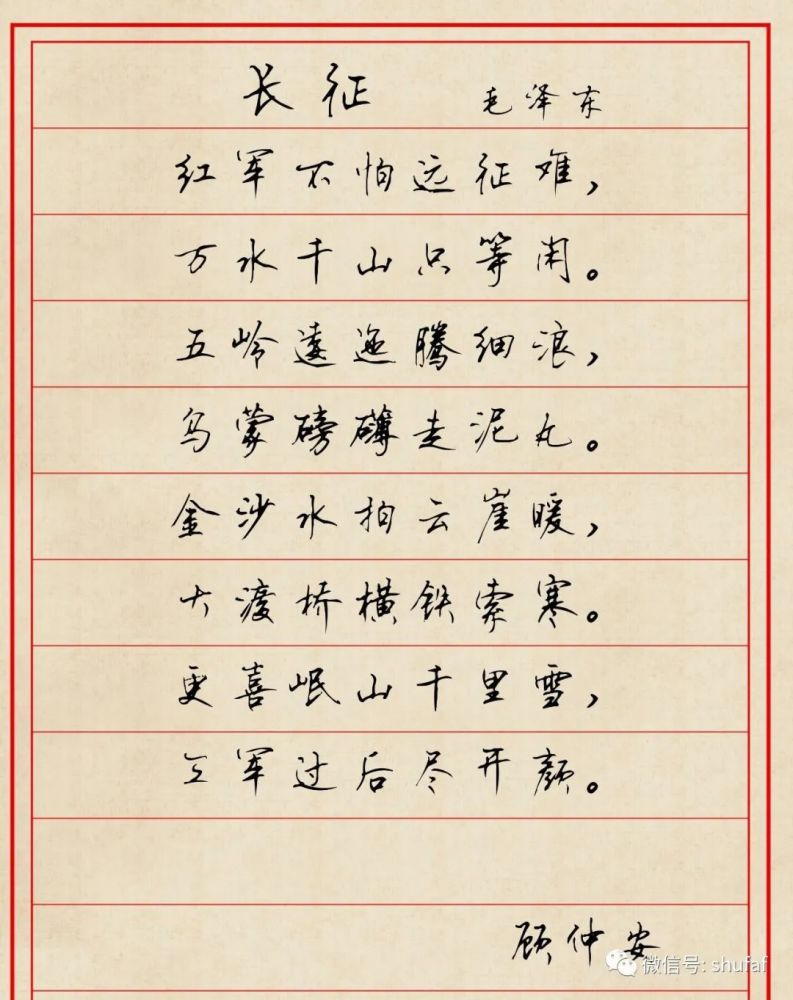 长征 毛泽东
红军不怕远征难，
万水千山只等闲。
五岭逶迤腾细浪，
乌蒙磅礴走泥丸。
金沙水拍云崖暖，
大渡桥横铁索寒。
更喜岷山千里雪，
三军过后尽开颜。
顾仲安
微信号: shufaf